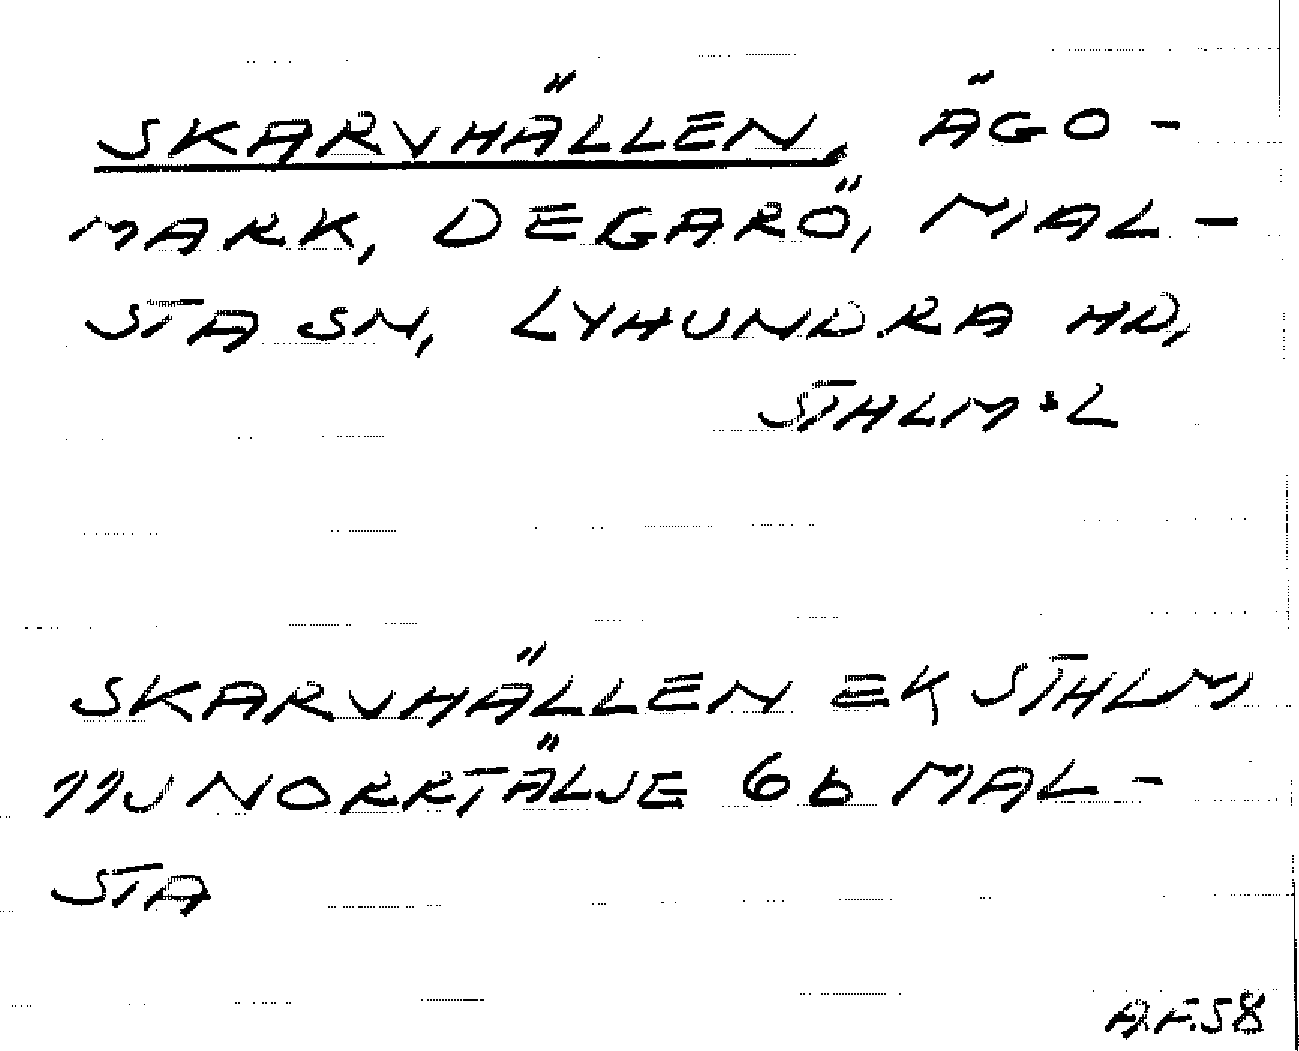 SKARVHÄLLEN, ÄGO-
MARK, DEGARÖ, MAL-
STA SN, LYHUNDRA HD,
STHLM.L
SKARVHÄLLEN EK STHLM
11J NORRTÄLJE 6b MAL-
STA
A.F.58